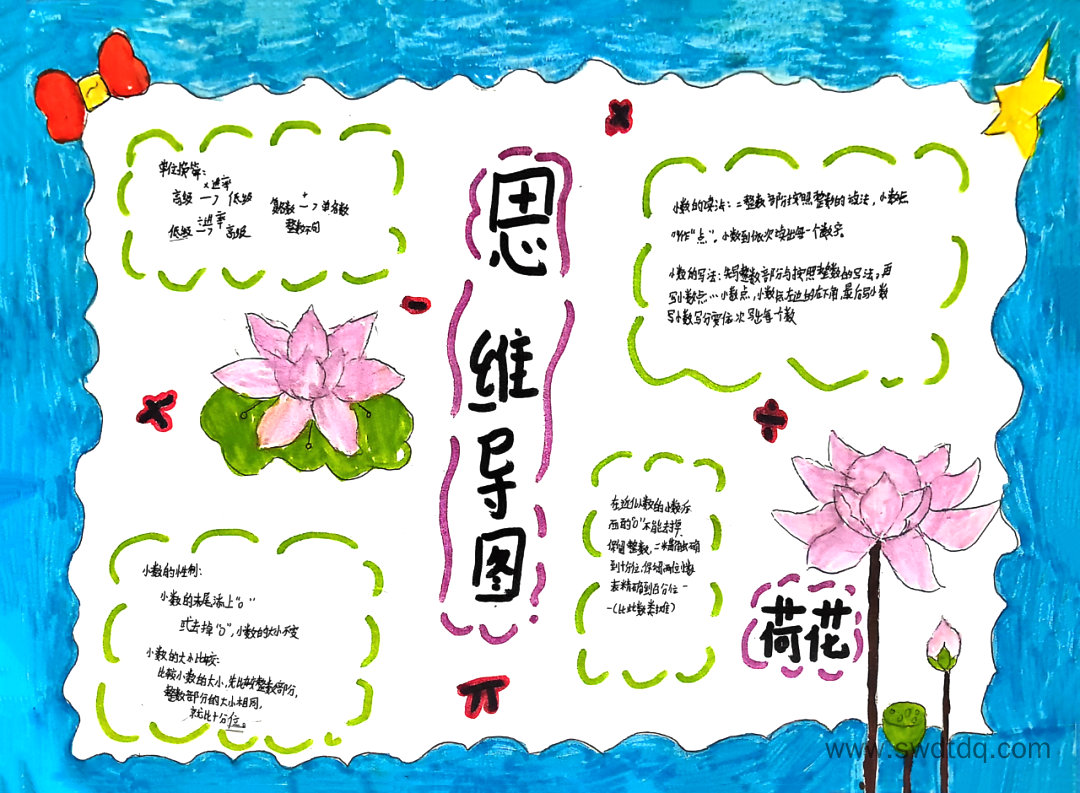 思
维
导
图
单位换算:
×进率
高级 → 低级
÷进率
低级 → 高级
→ 单名数
整数不同
小数的读法:
整数部分按照整数的读法,小数点
叫作"点",小数部依次读出每一个数字。
小数的写法:先写整数部分与按照整数的写法,再
写小数点…小数点,小数点左边的在下角,最后写小数
次写出每个数
在近似数的小数后
面的"0"不能去掉.
保留整数,
到十分位,保留两位小数
表精确到百分位
(以此数类推)
小数的性制:
小数的末尾添上"0"
或去掉"0",小数的大小不变
小数的大小比较:
比较小数的大小,先比较整数部分,
整数部分的大小相同,
就比十分位。
荷花
+
-
×
÷
π
www.swdtdq.com